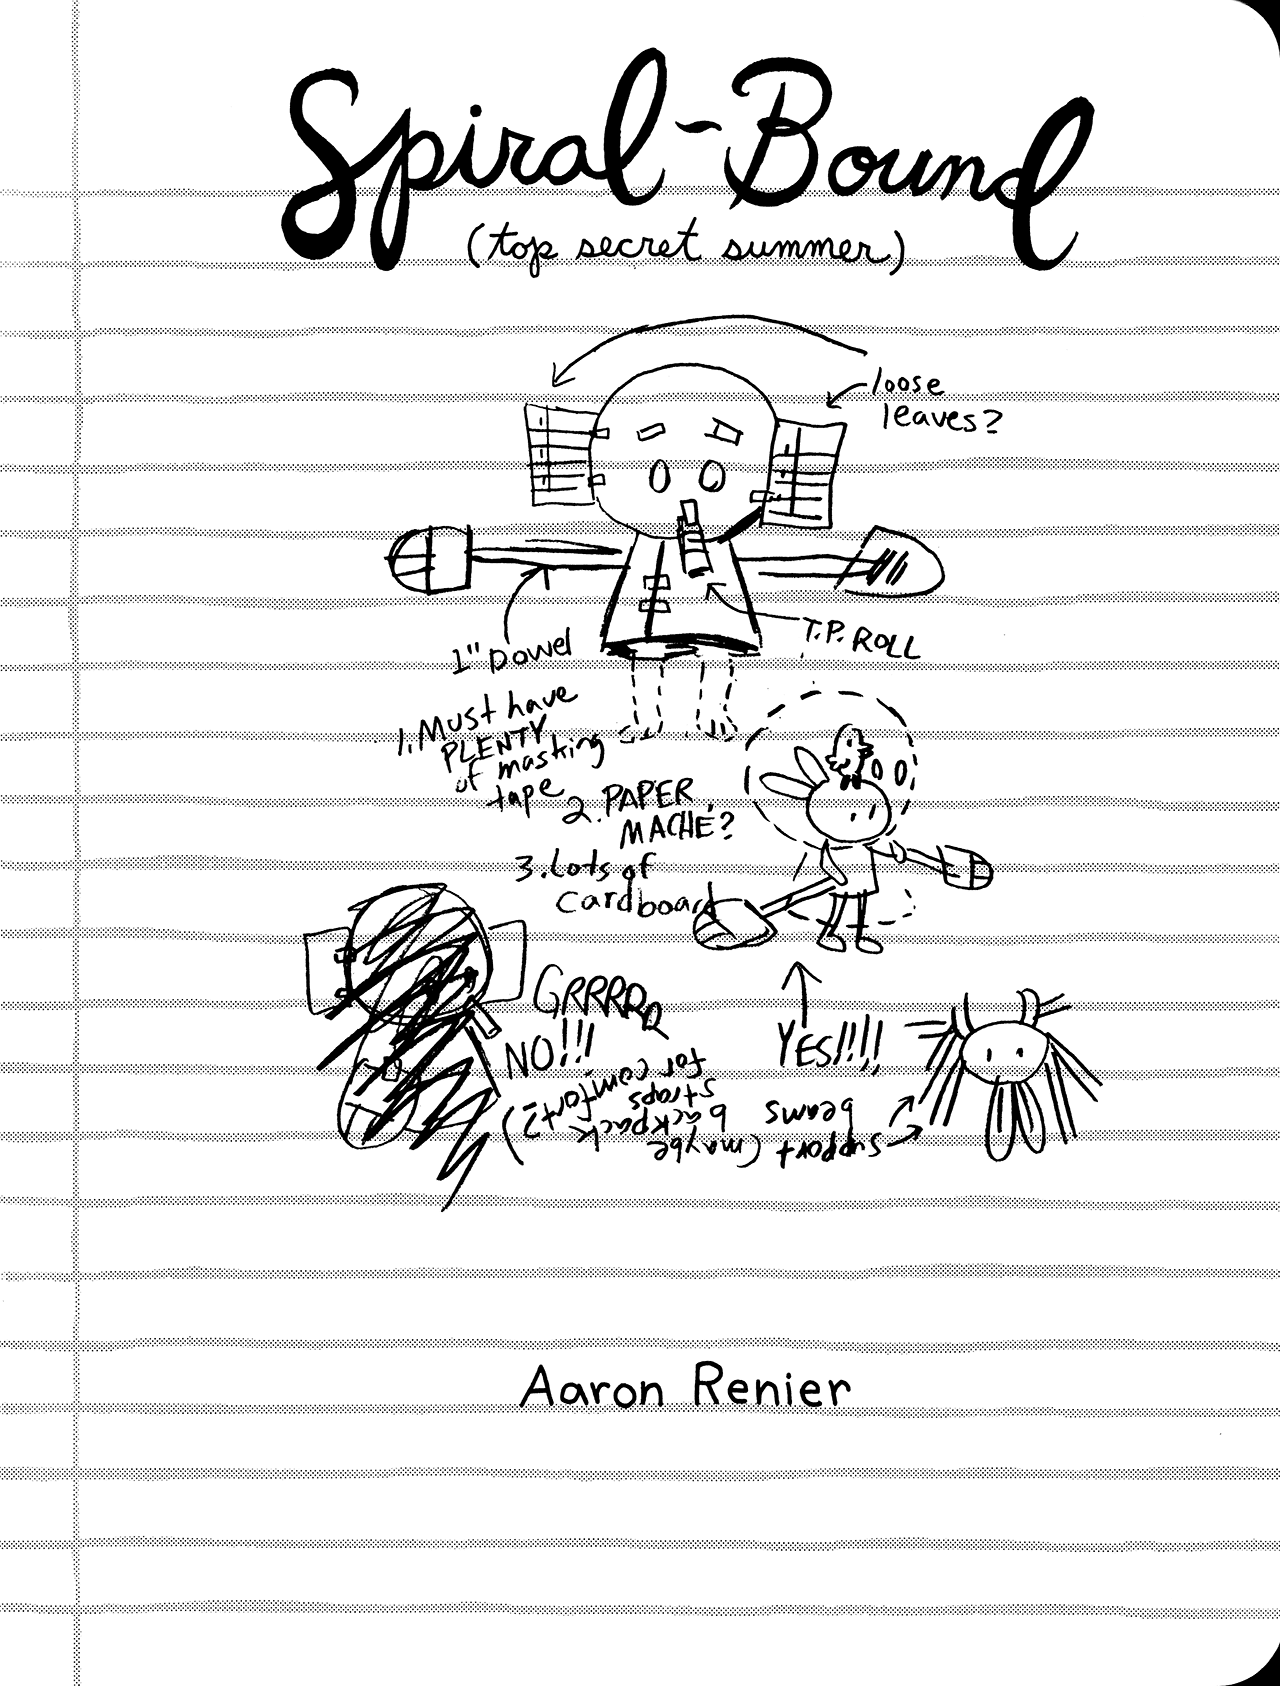 Spiral-Bound
(top secret summer)
loose
leaves?
1" Dowel
T.P. ROLL
1. Must have
PLENTY
of masking
tape
2. PAPER
MACHE?
3. Lots of
cardboard
GRRRRR
NO!!!
YES!!!!
support
beams
(maybe
backpack
straps
for comfort?)
Aaron Renier